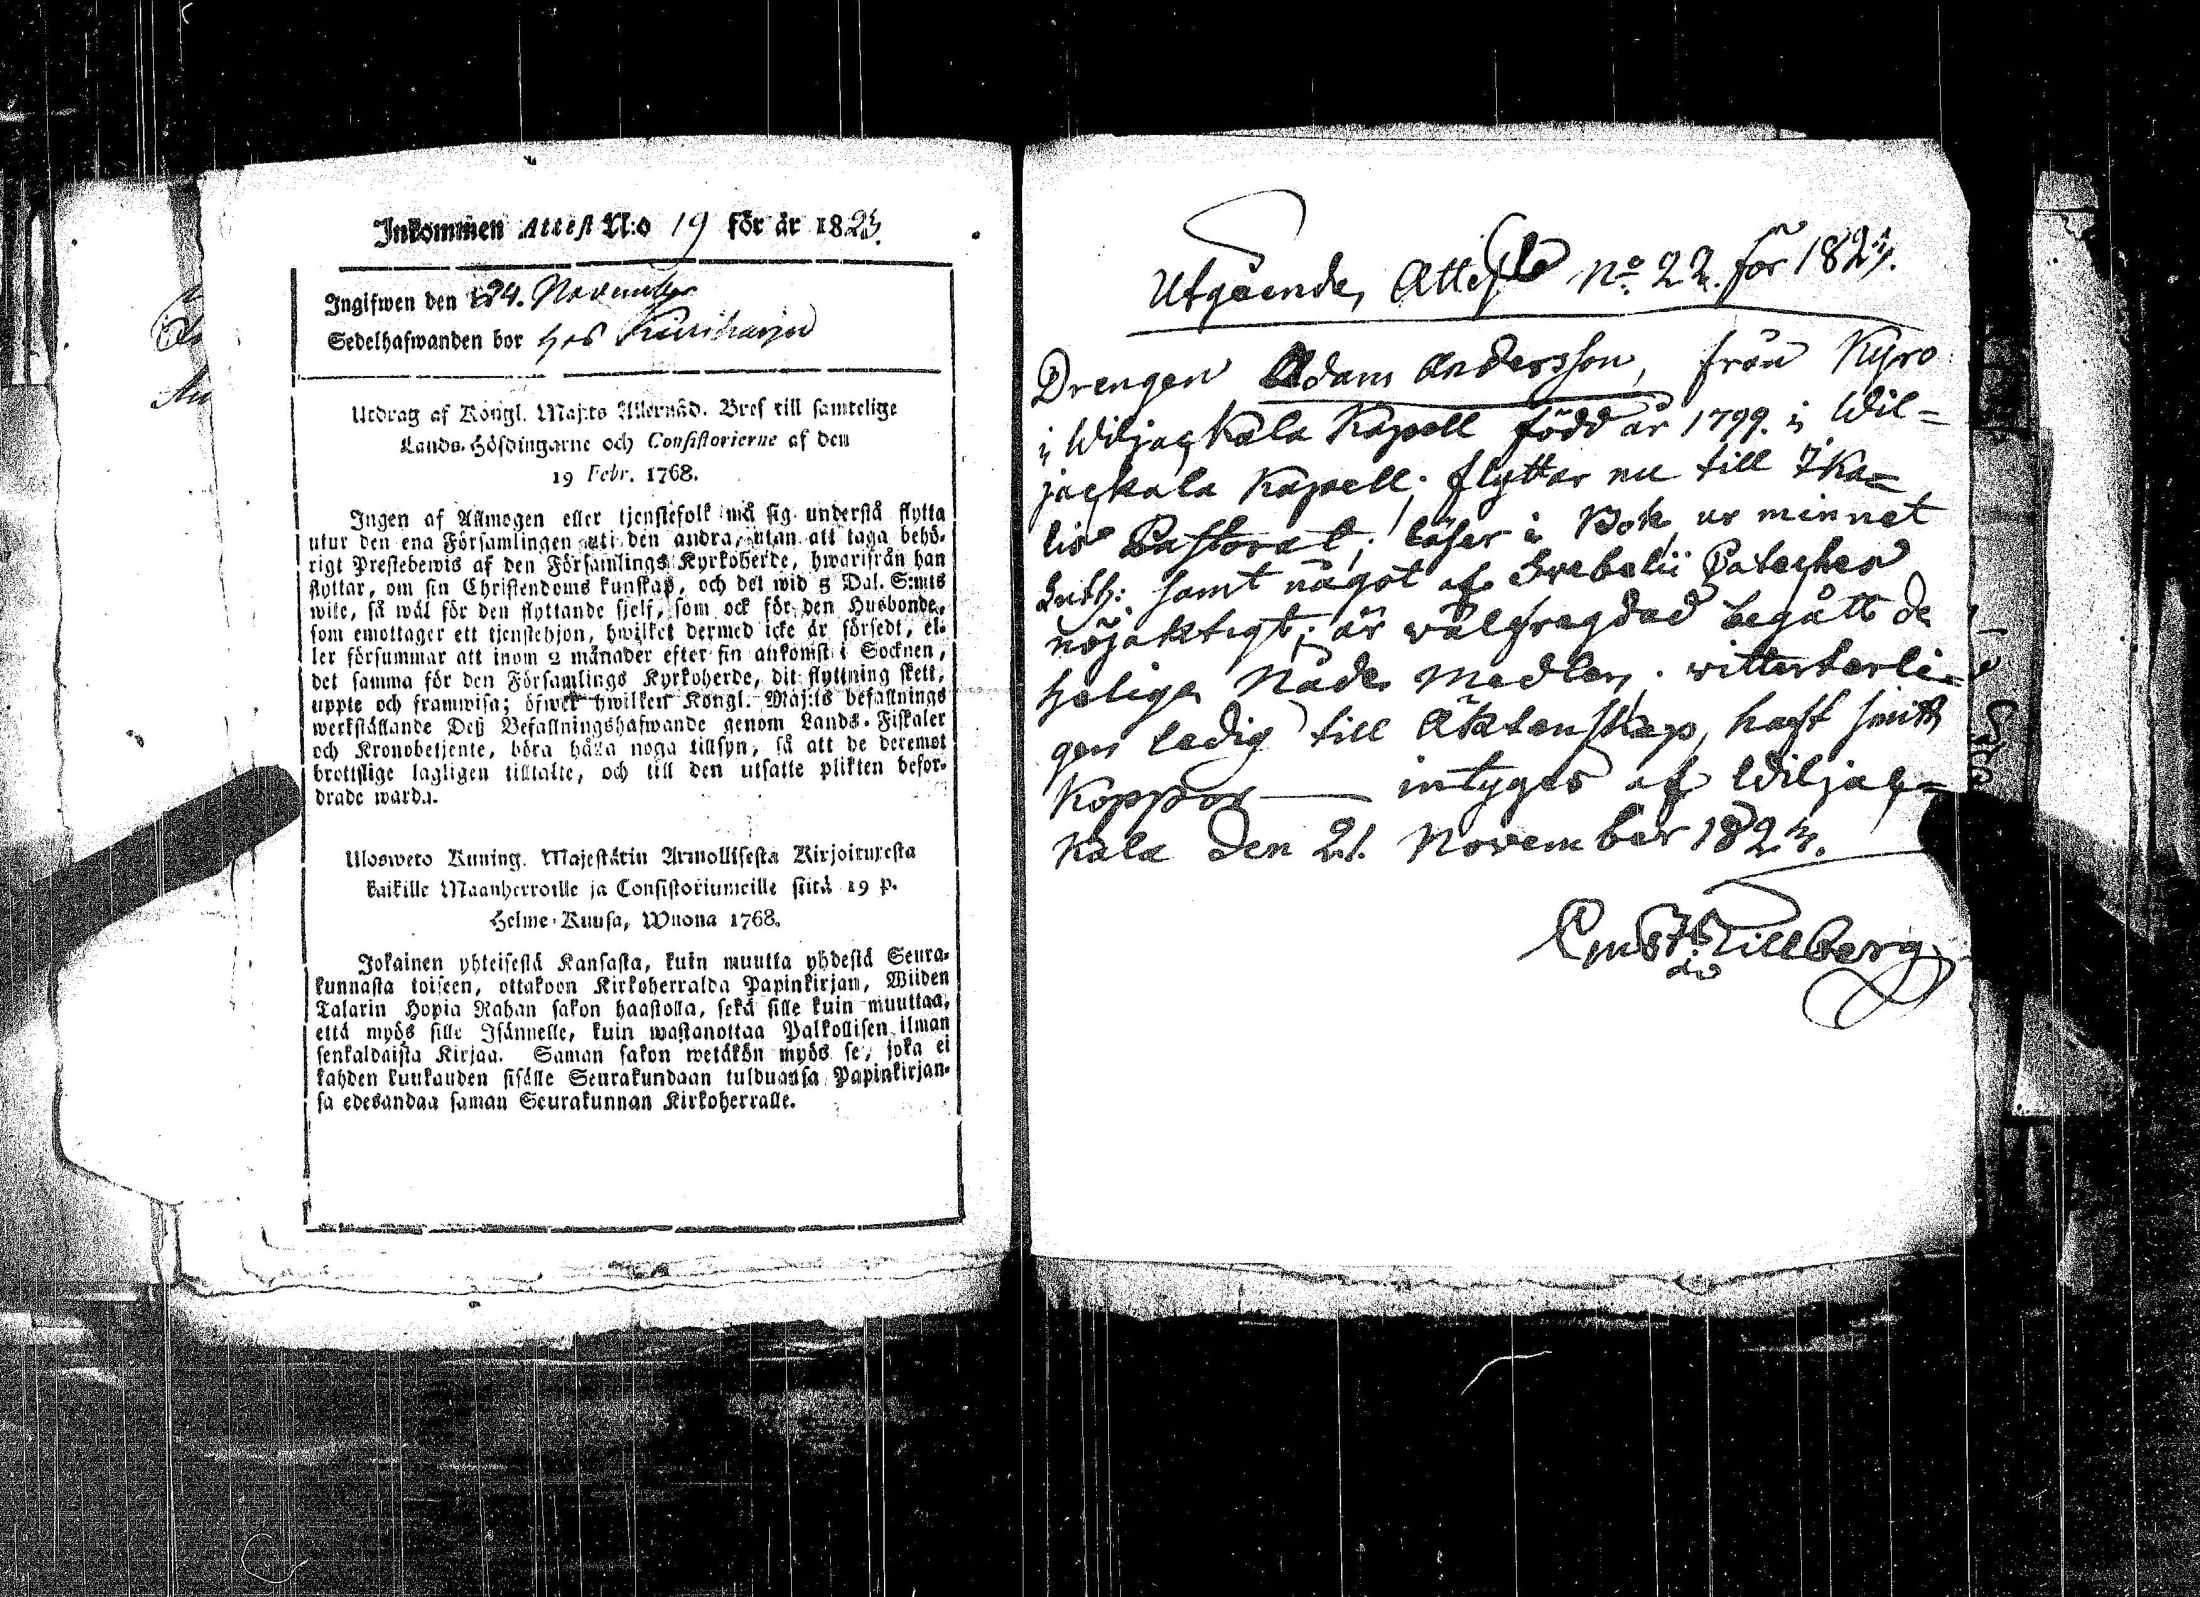 Inkommen Attest N:o 19 för år 1823.
Ingifwen den 24. November
Sedelhafwanden bor hos
Utdrag af Kongl. Maj:ts Allernåd. Bref till samtelige
Lands-Höfdingarne och Consistorierne af den
19 Febr. 1768.
Ingen af Allmogen eller tjenstefolk må sig understå flytta
utur den ena Församlingen uti den andra, utan att taga behö-
rigt Prestebewis af den Församlings Kyrkoherde, hwarifrån han
flyttar, om sin Christendoms kunskap, och det wid 5 Dal. S:mts
wite, så wäl för den flyttande sjelf, som ock för den Husbonde,
som emottager ett tjenstehjon, hwilket dermed icke är försedt, el-
ler försummar att inom 2 månader efter sin ankomst i Socknen,
det samma för den Församlings Kyrkoherde, dit flyttning skett,
uppte och framwisa; öfwer hwilken Kongl. Maj:ts befallnings
werkställande Deß Befallningshafwande genom Lands-Fiskaler
och Kronobetjente, böra hålla noga tillsyn, så att de deremot
brottslige lagligen tilltalte, och till den utsatte plikten befor-
drade warda.
Ulosweto Kuning. Majestätin Armollisesta Kirjoituxesta
kaikille Maanherroille ja Consistoriumeille siitä 19 p.
Helme-Kuusa, Wuona 1768.
Jokainen yhteisestä Kansasta, kuin muutta yhdestä Seura-
kunnasta toiseen, ottakoon Kirkoherralda Papinkirjan, Wiiden
Talarin Hopia Rahan sakon haastolla, sekä sille kuin muuttaa,
että myös sille Isännelle, kuin wastanottaa Palkollisen ilman
senkaldaista Kirjaa. Saman sakon wetäkön myös se, joka ei
kahden kuukauden sisälle Seurakundaan tulduansa Papinkirjan-
sa edesandaa saman Seurakunnan Kirkoherralle.
Utgående, Attest No. 22. för 1823.
Drengen Adam Andersson, från Kyro
i Wiljackala Kapell född år 1799. i Wil=
jackala Kapell; flyttar nu till Ika=
lis Pastorat; läser i Bok, ur minnet
Luth: samt något af Svebelii Cateches
nöjaktigt; är wälfragdad begått de
helige Nåde Medlen; witterterli=
gen ledig till Äktenskap, haft
Koppor — intygas af Wiljac=
kala den 21. November 1823.
Ernst Lillberg